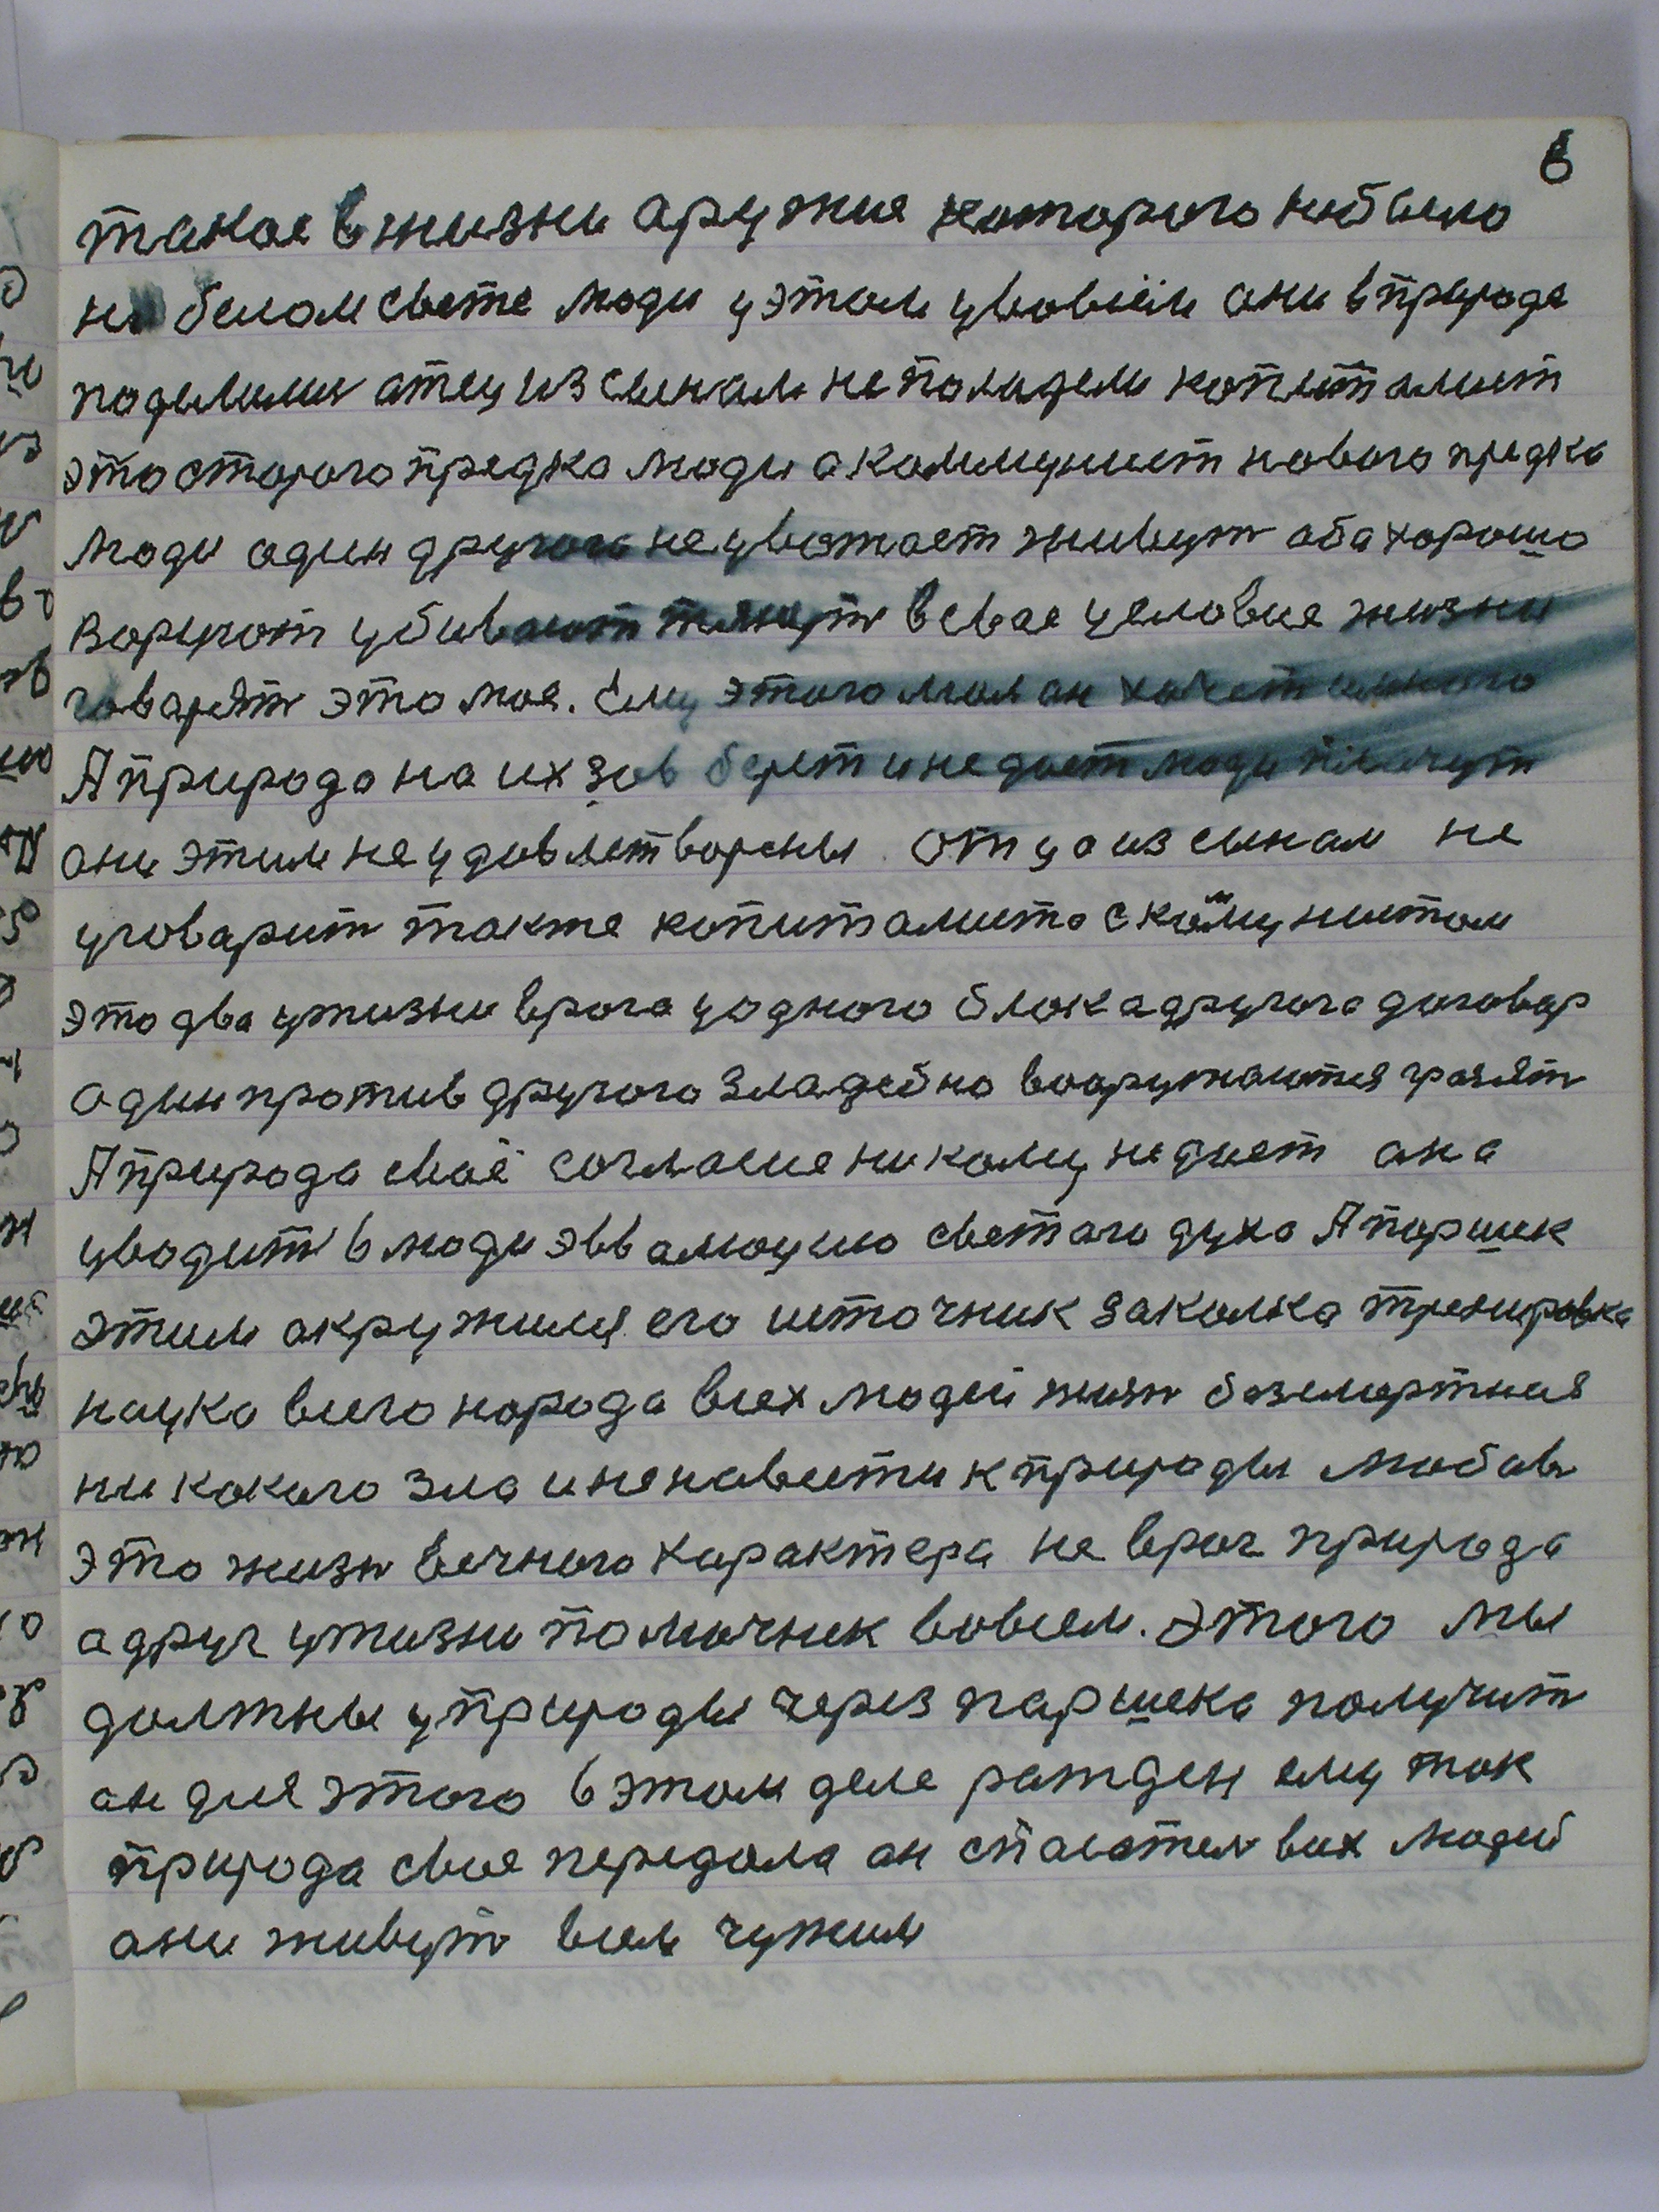 6
такое в жизни аружие которого не было
на белом свете люди у этом уловлели они в природе
поделили атец из сынам не поладели копиталист
это старого предка люди а коммунист нового предка
люди один другога не уважает живут аба хорошо
воруют убивают тянут в свае условие жизни
говарят это мое. Ему этого мал ан хочет многого
А природа на их зов берет и не дает люди плачут
ани этим не удовлетворены отца из сынам не
уговарит также копиталиста с коммунистом
это два у жизни врага у одного блок а другога договар
один против другого зладейно вооружаются грозят
А природа сваё согласие никому не дает ана
уводит в люди эввалюцию светаго духа А паршек
этим акружился его источник закалка тренировка
наука всего народа всех людей жить безсмертная
ни какого зла и ненависти к природы любовь
это жизнь вечного характера не враг природа
а друг у жизни помочник вовсем. Этого мы
должны у природы через паршека получить
ан для этого в этом деле ражден ему так
природа свое передала ан спасатель всех людей
ани живут всем чужим